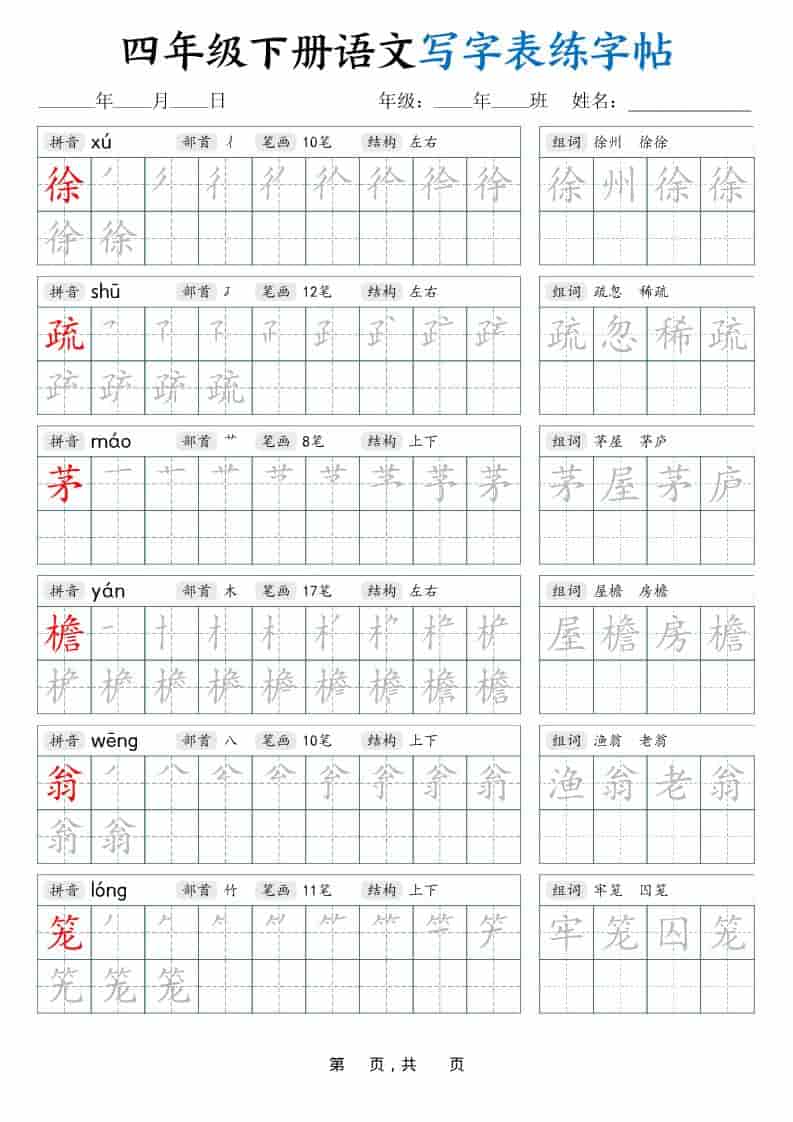 四年级下册语文写字表练字帖
______年____月____日 年级：____年____班 姓名：____________
拼音 xú 部首 彳 笔画 10笔 结构 左右 组词 徐州 徐徐
徐 徐 州 徐 徐
徐
拼音 shū 部首 ⺪ 笔画 12笔 结构 左右 组词 疏忽 稀疏
疏 疏 忽 稀 疏
疏
拼音 máo 部首 艹 笔画 8笔 结构 上下 组词 茅屋 茅庐
茅 茅 茅 屋 茅 庐
拼音 yán 部首 木 笔画 17笔 结构 左右 组词 屋檐 房檐
檐 屋 檐 房 檐
檐
拼音 wēng 部首 八 笔画 10笔 结构 上下 组词 渔翁 老翁
翁 渔 翁 老 翁
翁
拼音 lóng 部首 竹 笔画 11笔 结构 上下 组词 牢笼 囚笼
笼 牢 笼 囚 笼
笼
第 页，共 页